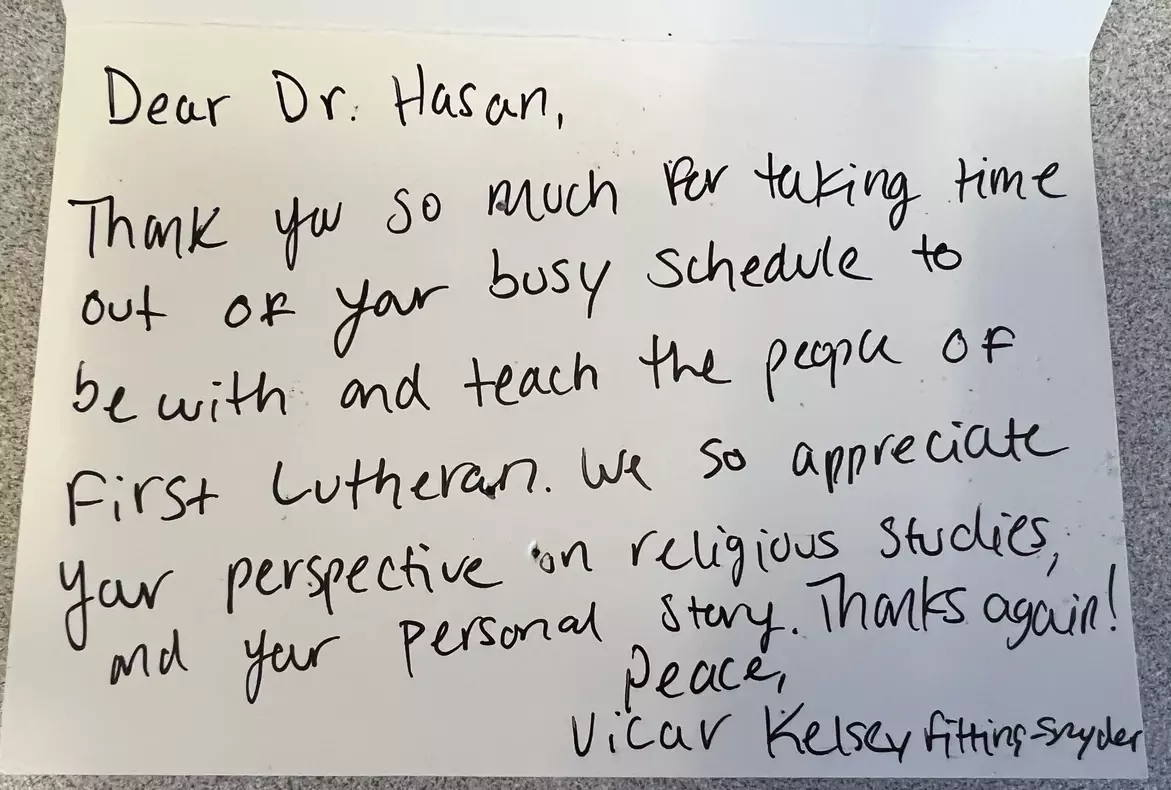 Dear Dr. Hasan,
Thank you so much for taking time
out of your busy schedule to
be with and teach the people of
First Lutheran. We so appreciate
your perspective on religious studies,
and your personal story. Thanks again!
Peace,
Vicar Kelsey Fitting-Snyder